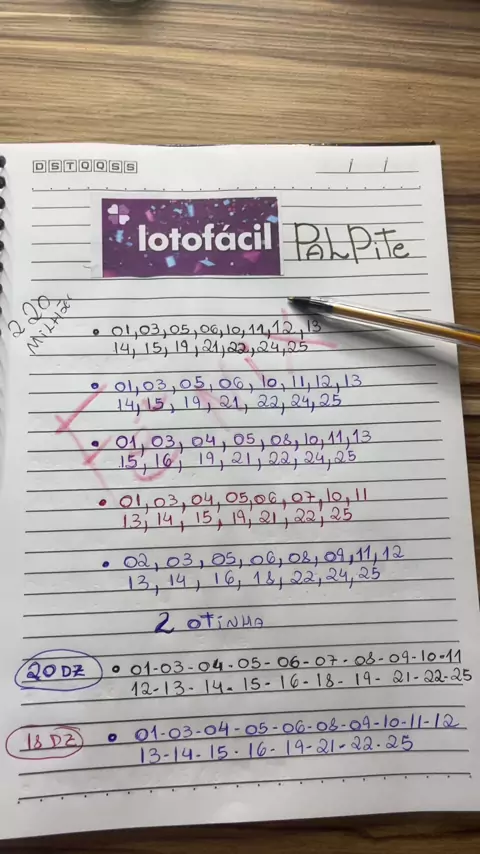 DSTQQSS
/ /
lotofácil PALPite
220 Milhões
• 01, 03, 05, 06, 10, 11, 12, 13
14, 15, 19, 21, 22, 24, 25
• 01, 03, 05, 06, 10, 11, 12, 13
14, 15, 19, 21, 22, 24, 25
• 01, 03, 04, 05, 08, 10, 11, 13
15, 16, 19, 21, 22, 24, 25
• 01, 03, 04, 05, 06, 07, 10, 11
13, 14, 15, 19, 21, 22, 25
• 02, 03, 05, 06, 08, 09, 11, 12
13, 14, 16, 18, 22, 24, 25
2 OTINHA
20 DZ • 01-03-04-05-06-07-08-09-10-11
12-13-14-15-16-18-19-21-22-25
18 DZ • 01-03-04-05-06-08-09-10-11-12
13-14-15-16-19-21-22-25